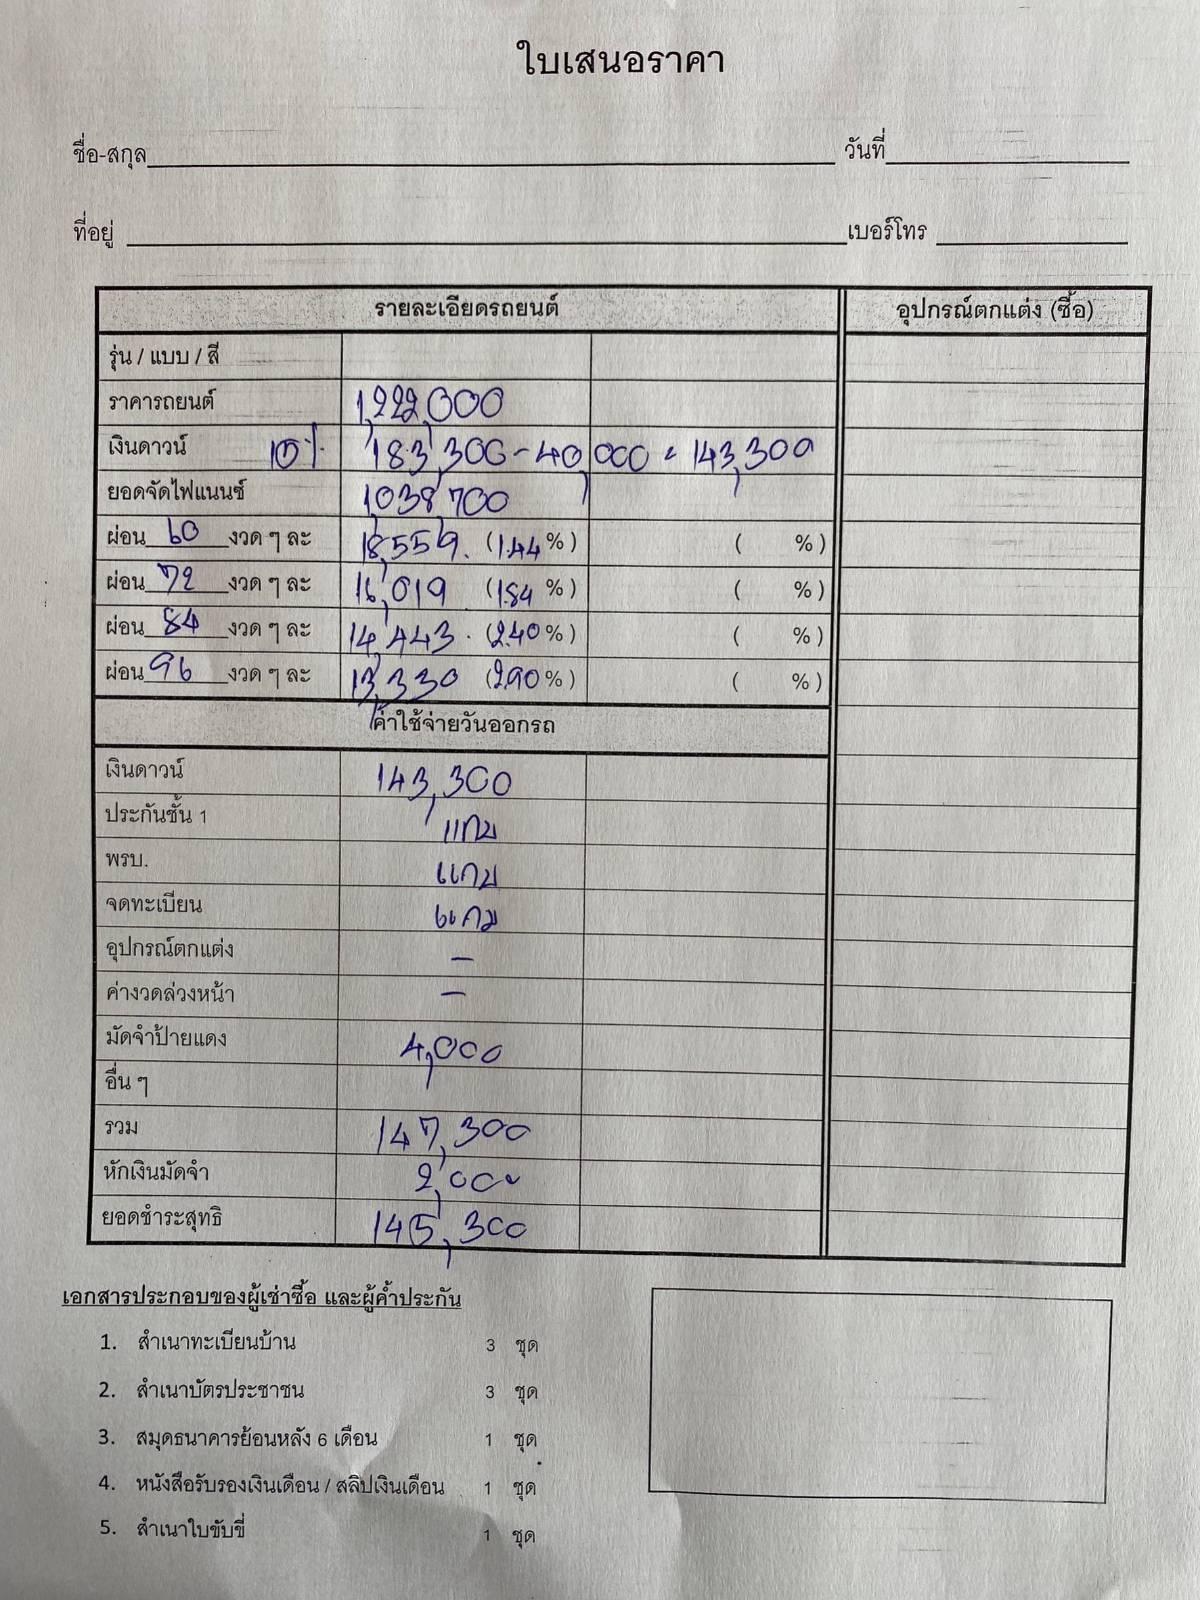 ใบเสนอราคา
ชื่อ-สกุล วันที่
ที่อยู่ เบอร์โทร
รายละเอียดรถยนต์ อุปกรณ์ตกแต่ง (ซื้อ)
รุ่น / แบบ / สี
ราคารถยนต์ 1,222,000
เงินดาวน์ 15% 183,300 - 40,000 = 143,300
ยอดจัดไฟแนนซ์ 1,038,700
ผ่อน 60 งวด ๆ ละ 18,559. (1.44 %) ( %)
ผ่อน 72 งวด ๆ ละ 16,019 (1.84 %) ( %)
ผ่อน 84 งวด ๆ ละ 14,443. (2.40 %) ( %)
ผ่อน 96 งวด ๆ ละ 13,330 (2.90 %) ( %)
ค่าใช้จ่ายวันออกรถ
เงินดาวน์ 143,300
ประกันชั้น 1 แถม
พรบ. แถม
จดทะเบียน แถม
อุปกรณ์ตกแต่ง –
ค่างวดล่วงหน้า –
มัดจำป้ายแดง 4,000
อื่น ๆ
รวม 147,300
หักเงินมัดจำ 2,000
ยอดชำระสุทธิ 145,300
เอกสารประกอบของผู้เช่าซื้อ และผู้ค้ำประกัน
1. สำเนาทะเบียนบ้าน 3 ชุด
2. สำเนาบัตรประชาชน 3 ชุด
3. สมุดธนาคารย้อนหลัง 6 เดือน 1 ชุด
4. หนังสือรับรองเงินเดือน / สลิปเงินเดือน 1 ชุด
5. สำเนาใบขับขี่ 1 ชุด